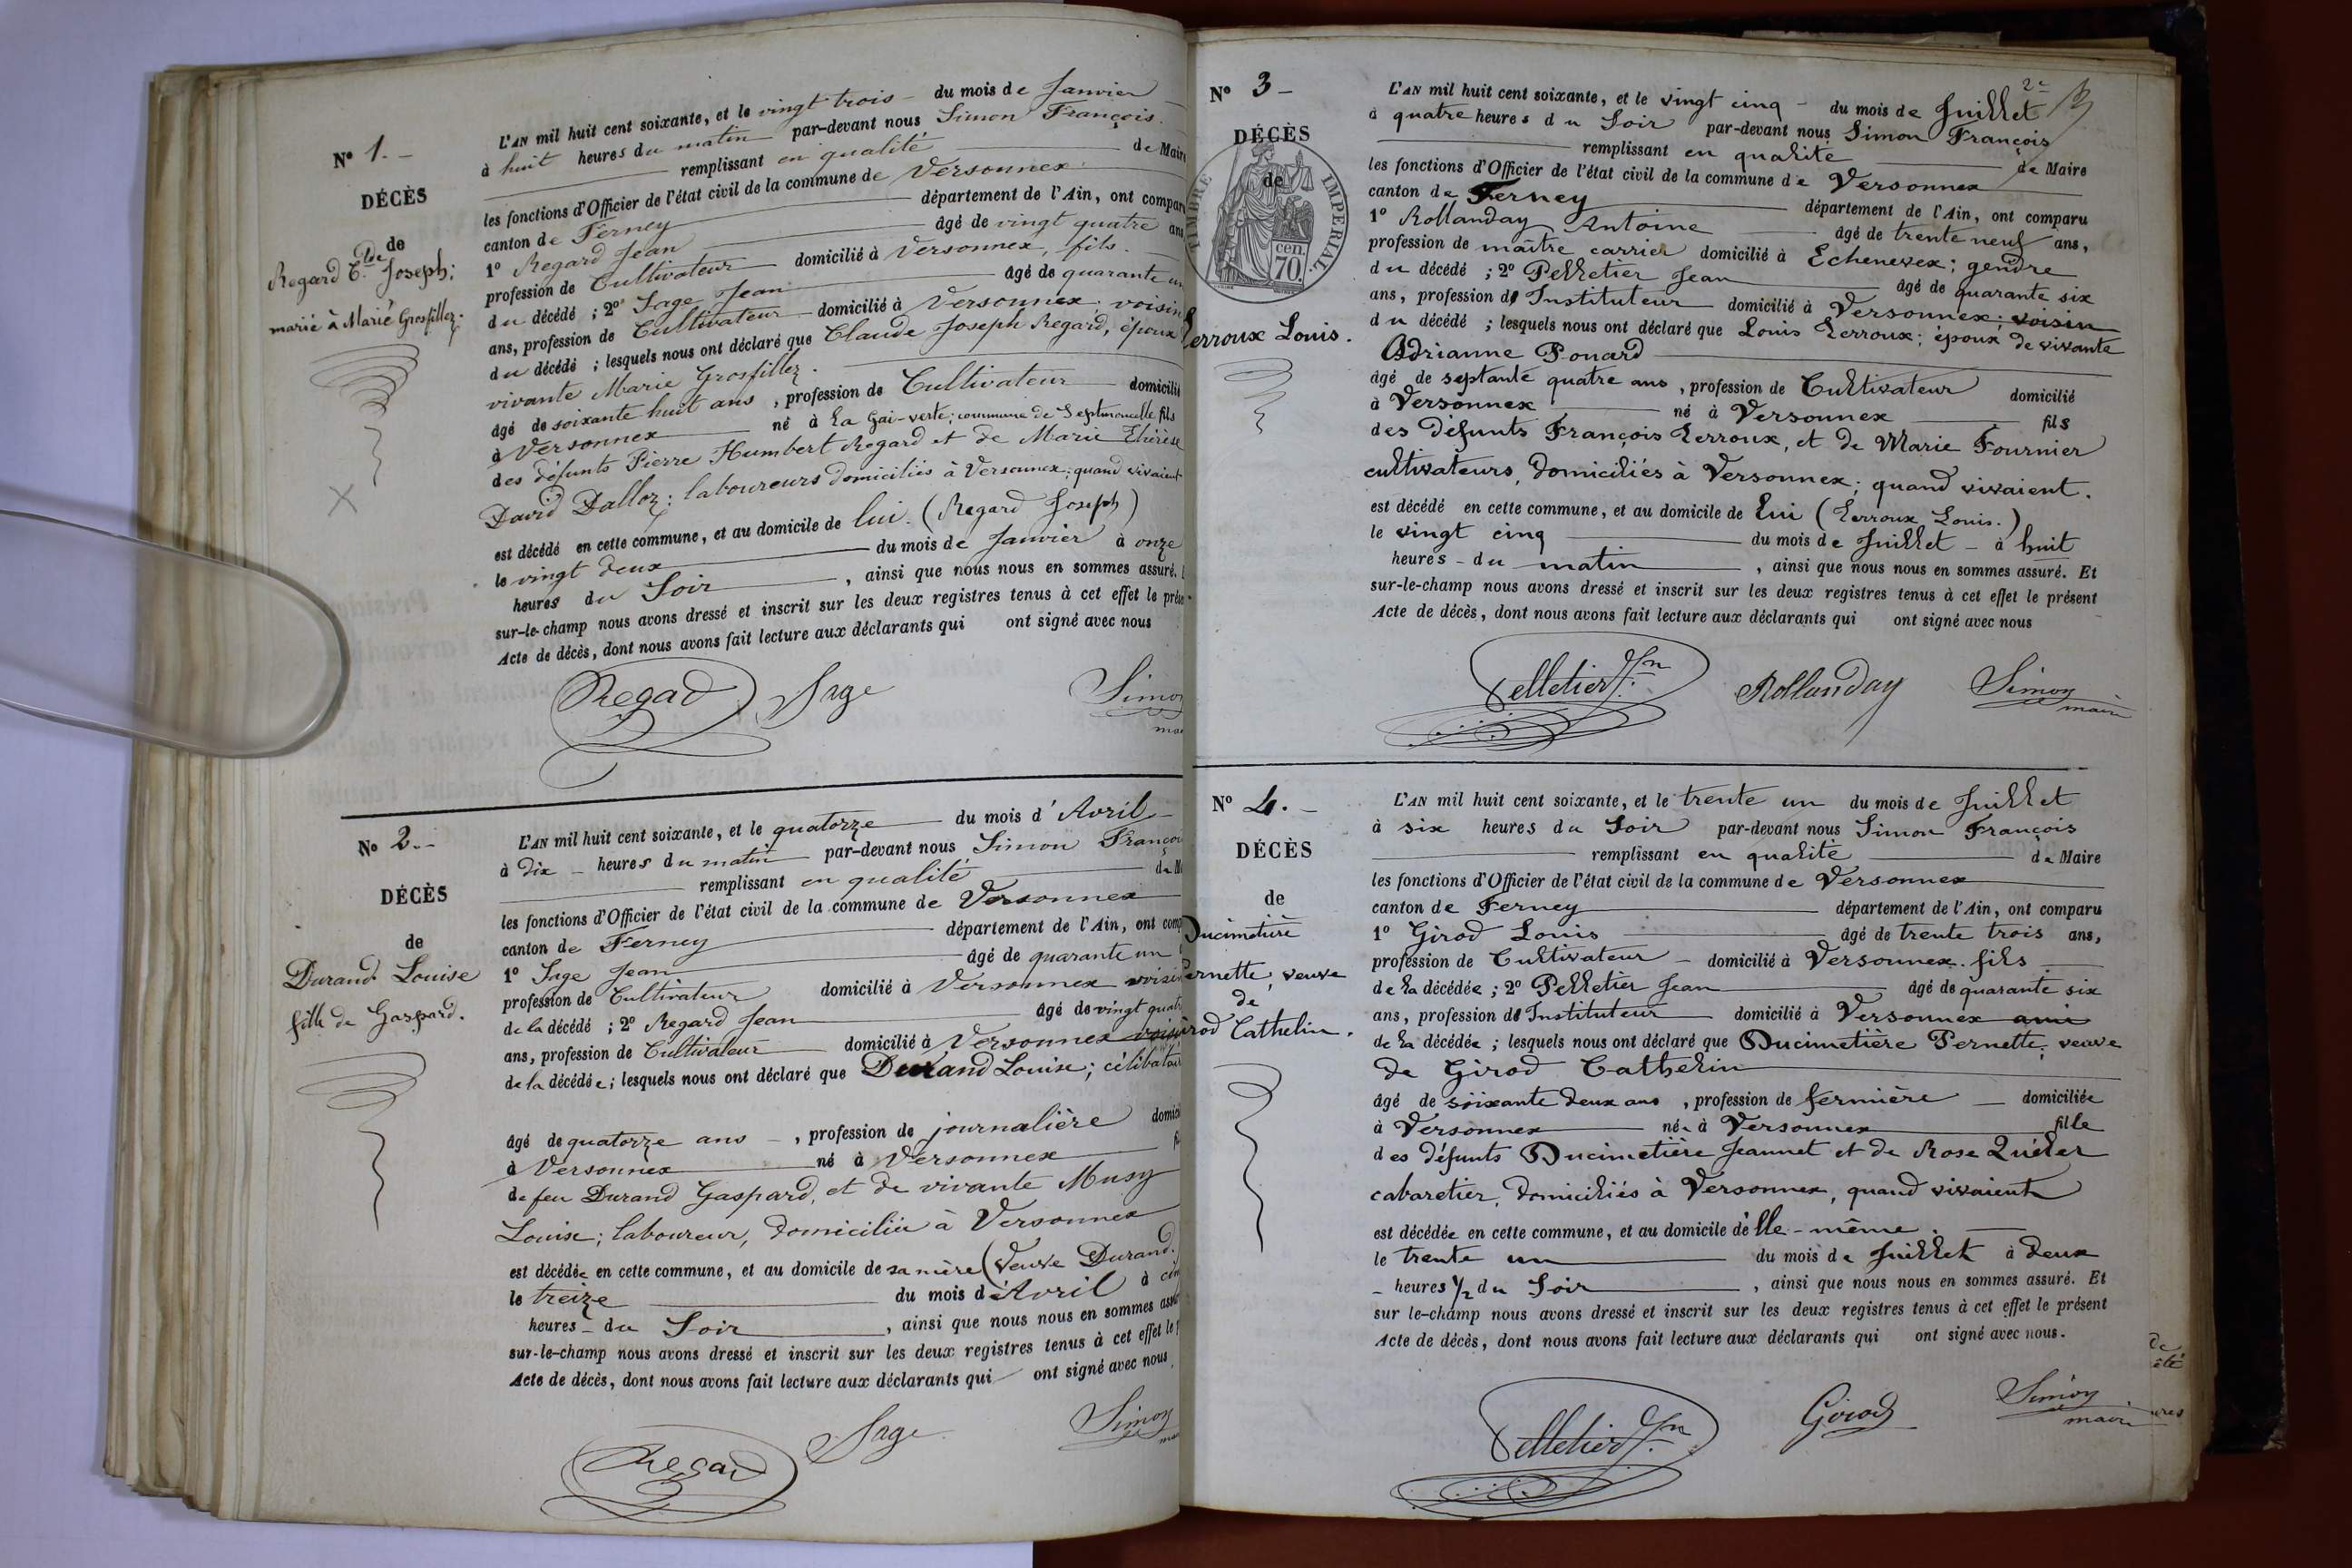 N° 1. -
DÉCÈS
de
Regard C.de Joseph;
marié à Marie Grosfillez.
L'AN mil huit cent soixante, et le vingt trois - du mois de Janvier
à huit heures du matin par-devant nous Simon François.
remplissant en qualité de Maire
les fonctions d'Officier de l'état civil de la commune de Versonnex
canton de Ferney département de l'Ain, ont comparu
1° Regard Jean âgé de vingt quatre ans
profession de Cultivateur domicilié à Versonnex, fils.
du décédé ; 2° Sage Jean âgé de quarante un
ans, profession de Cultivateur domicilié à Versonnex. voisin
du décédé ; lesquels nous ont déclaré que Claude Joseph Regard, époux
vivante Marie Grosfillez.
âgé de soixante huit ans, profession de Cultivateur domicilié
à Versonnex né à La Gai-verte; commune de Septmoncelle fils
des défunts Pierre Humbert Regard et de Marie Thérèse
David Dalloz; laboureurs domiciliés à Versonnex; quand vivaient
est décédé en cette commune, et au domicile de lui. (Regard Joseph)
le vingt deux du mois de Janvier à onze
heures du Soir, ainsi que nous nous en sommes assuré.
sur-le-champ nous avons dressé et inscrit sur les deux registres tenus à cet effet le
Acte de décès, dont nous avons fait lecture aux déclarants qui ont signé avec nous
Regad Sage Simon
N° 2. -
DÉCÈS
de
Durand Louise
fille de Gaspard.
L'AN mil huit cent soixante, et le quatorze du mois d'Avril
à dix - heures du matin par-devant nous Simon François
remplissant en qualité de
les fonctions d'Officier de l'état civil de la commune de Versonnex
canton de Ferney département de l'Ain, ont
1° Sage Jean âgé de quarante un
profession de Cultivateur domicilié à Versonnex voisin
de la décédé ; 2° Regard Jean âgé de vingt quatre
ans, profession de Cultivateur domicilié à Versonnex voisin
de la décédée ; lesquels nous ont déclaré que Durand Louise; célibataire
âgé de quatorze ans -, profession de journalière
à Versonnex né à Versonnex
de feu Durand Gaspard, et de vivante Musy
Louise; laboureur, domicilié à Versonnex
est décédée en cette commune, et au domicile de sa mère (Veuve Durand.
le treize du mois d'Avril à
heures - du Soir, ainsi que nous nous en sommes
sur-le-champ nous avons dressé et inscrit sur les deux registres tenus à cet effet le
Acte de décès, dont nous avons fait lecture aux déclarants qui ont signé avec nous,
Regad Sage Simon
2e
N° 3 -
DÉCÈS
de
TIMBRE IMPERIAL.
cen. 70
Lerroux Louis.
L'AN mil huit cent soixante, et le vingt cinq - du mois de Juillet
à quatre heures du Soir par-devant nous Simon François
remplissant en qualité de Maire
les fonctions d'Officier de l'état civil de la commune de Versonnex
canton de Ferney département de l'Ain, ont comparu
1° Rollanday Antoine âgé de trente neuf ans,
profession de maître carrier domicilié à Echenevex; gendre
du décédé ; 2° Pelletier Jean âgé de quarante six
ans, profession de Instituteur domicilié à Versonnex; voisin
du décédé ; lesquels nous ont déclaré que Louis Lerroux; époux de vivante
Adrianne Ponard
âgé de septante quatre ans, profession de Cultivateur domicilié
à Versonnex né à Versonnex fils
des défunts François Lerroux, et de Marie Fournier
cultivateurs, domiciliés à Versonnex; quand vivaient.
est décédé en cette commune, et au domicile de lui (Lerroux Louis.)
le vingt cinq du mois de Juillet - à huit
heures - du matin, ainsi que nous nous en sommes assuré. Et
sur-le-champ nous avons dressé et inscrit sur les deux registres tenus à cet effet le présent
Acte de décès, dont nous avons fait lecture aux déclarants qui ont signé avec nous
Pelletier Jn. Rollanday Simon
maire
N° 4. -
DÉCÈS
de
Ducimetière
Pernette, veuve
de
Girod Cathelin.
L'AN mil huit cent soixante, et le trente un du mois de Juillet
à six heures du Soir par-devant nous Simon François
remplissant en qualité de Maire
les fonctions d'Officier de l'état civil de la commune de Versonnex
canton de Ferney département de l'Ain, ont comparu
1° Girod Louis âgé de trente trois ans,
profession de Cultivateur - domicilié à Versonnex. fils
de la décédée ; 2° Pelletier Jean âgé de quarante six
ans, profession de Instituteur domicilié à Versonnex ami
de la décédée ; lesquels nous ont déclaré que Ducimetière Pernette; veuve
de Girod Cathelin
âgé de soixante deux ans, profession de fermière - domiciliée
à Versonnex née à Versonnex fille
des défunts Ducimetière Jeannet et de Rose
cabaretier, domiciliés à Versonnex, quand vivaient
est décédée en cette commune, et au domicile d'elle-même.
le trente un du mois de Juillet à deux
- heures 1/2 du Soir, ainsi que nous nous en sommes assuré. Et
sur le-champ nous avons dressé et inscrit sur les deux registres tenus à cet effet le présent
Acte de décès, dont nous avons fait lecture aux déclarants qui ont signé avec nous.
Pelletier Jn. Girod Simon
maire